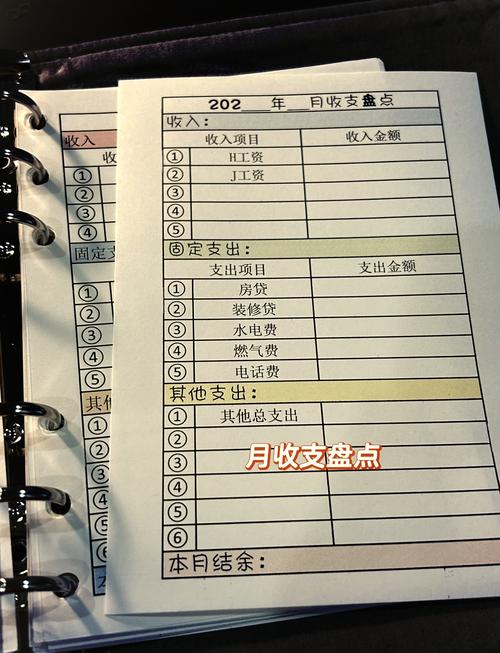 202__年__月收支盘点
收入：
收入项目 收入金额
① H工资
② J工资
③
④
⑤
固定支出：
支出项目 支出金额
① 房贷
② 装修贷
③ 水电费
④ 燃气费
⑤ 电话费
其他支出：
① 其他总支出
②
③ 月收支盘点
④
⑤
⑥
本月结余：
收入
收
①
②
③
④
固定支
①
②
③
④
⑤
其他
①
②
③
④
⑤
⑥